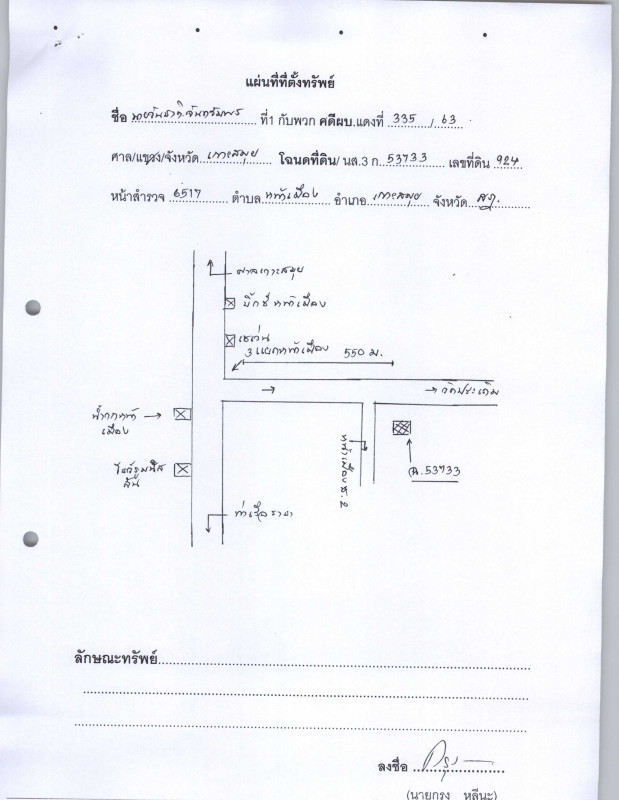 แผ่นที่ที่ตั้งทรัพย์
ชื่อ ที่1 กับพวก คดีผบ.แดงที่ 335 / 63
ศาล/แขวง/จังหวัด เกาะสมุย โฉนดที่ดิน/ นส.3 ก 53733 เลขที่ดิน 924
หน้าสำรวจ 6517 ตำบล หน้าเมือง อำเภอ เกาะสมุย จังหวัด สฎ.
ศาลเกาะสมุย
บิ๊กซี หน้าเมือง
เซเว่น
3 แยกหน้าเมือง 550 ม.
วัดประเดิม
น้ำตกหน้า
เมือง
หน้าเมือง ซ. 2
ฉ.53733
ท่าเรือราชา
ลักษณะทรัพย์
ลงชื่อ
(นายกรุง หลีนะ)